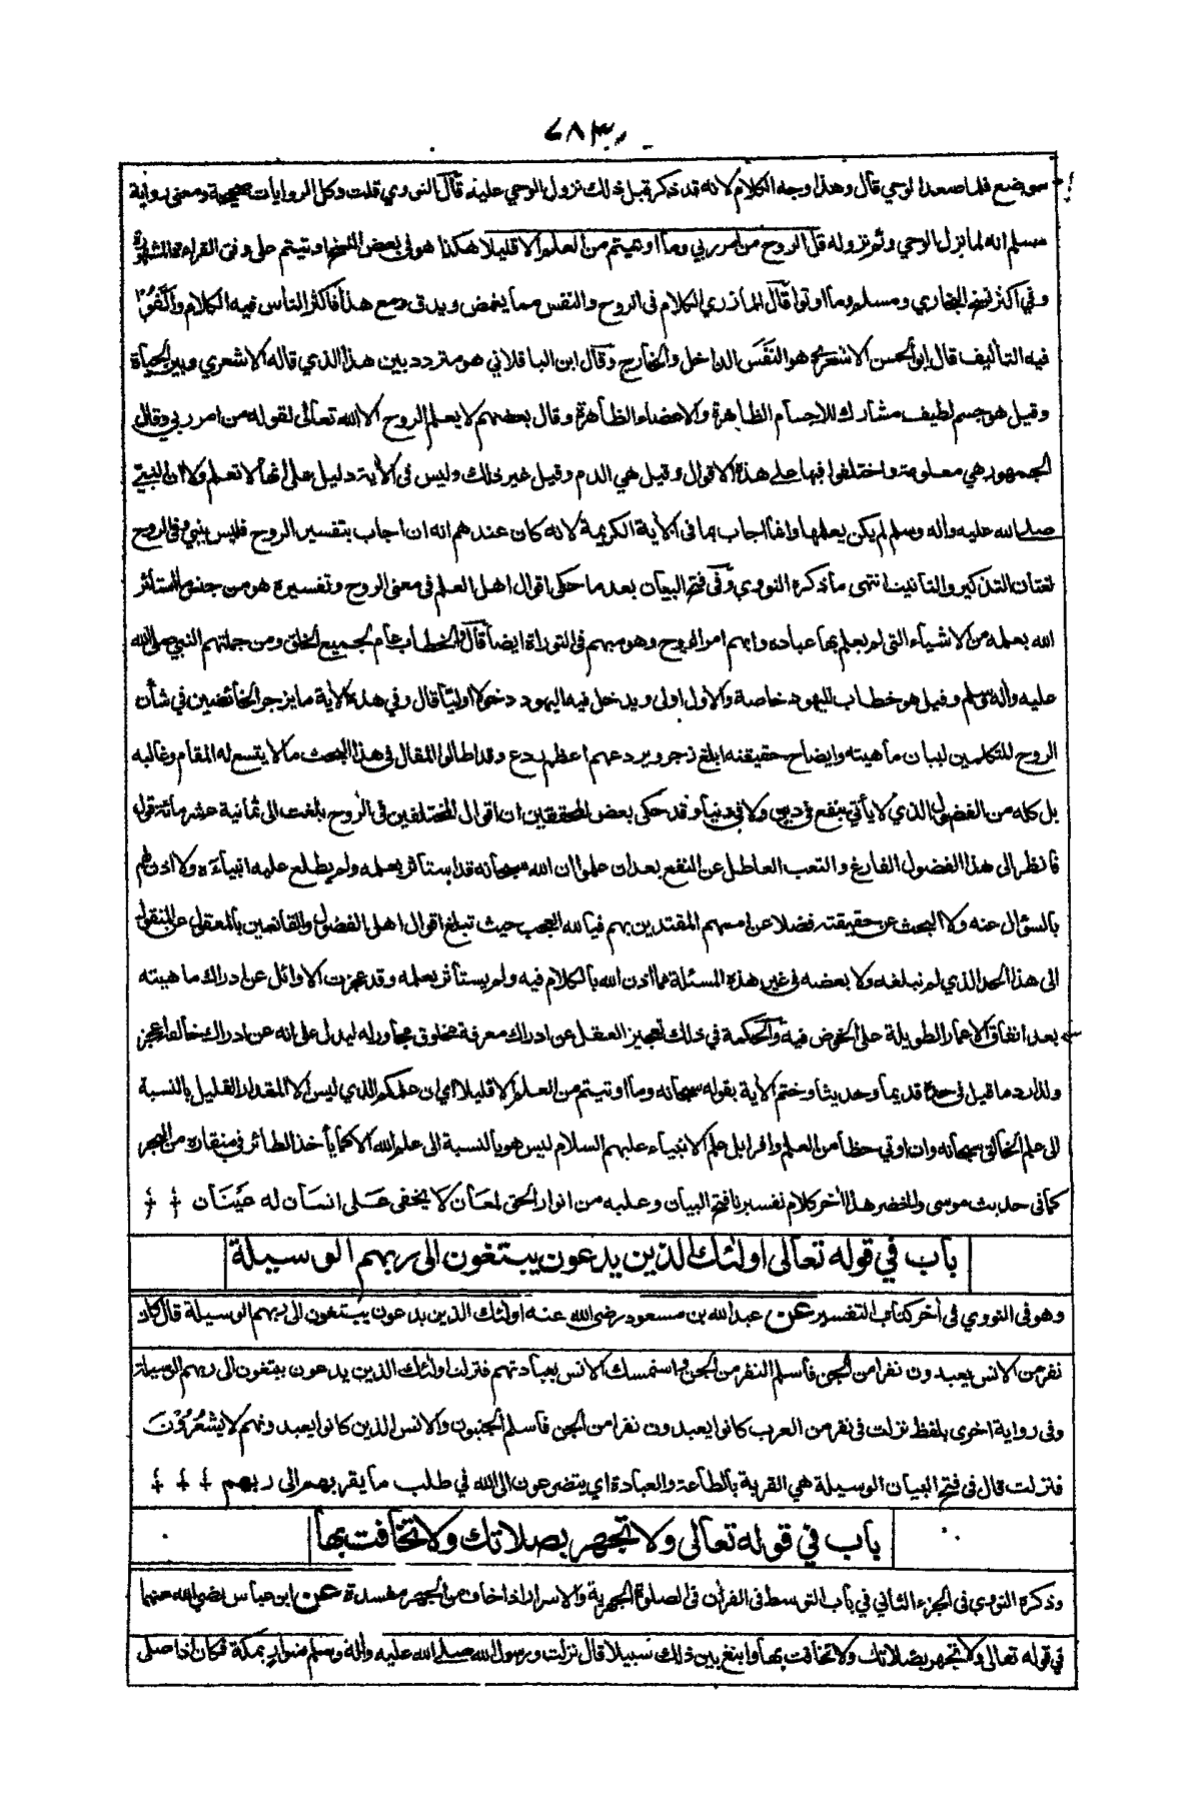 ٦٨٣
موضع فلما صعد الوحي قال وهذا وجه الكلام لانه قد ذكر قبل ذلك نزول الوحي عليه قال النووي قلت وكل الروايات صحيحة ومعنى رواية
مسلم انه لما نزل الوحي وتم نزوله قل الروح من امر ربي وما اوتيتم من العلم الا قليلا هكذا هو في بعض النسخ اوتيتم على وفق القراءة المشهورة
وفي اكثر نسخ البخاري ومسلم وما اوتوا قال المازري الكلام في الروح والنفس مما يغمض ويدق ومع هذا فاكثر الناس فيه الكلام والّفوا
فيه التأليف قال ابو الحسن الاشعري هو النَفَس الداخل والخارج وقال ابن الباقلاني هو متردد بين هذا الذي قاله الاشعري وبين الحياة
وقيل هو جسم لطيف مشارك للاجسام الظاهرة والاعضاء الظاهرة وقال بعضهم لا يعلم الروح الا الله تعالى لقوله من امر ربي وقال
الجمهور هي معلومة واختلفوا فيها على هذه الاقوال وقيل هي الدم وقيل غير ذلك وليس في الأية دليل على انها لا تعلم ولا ان النبي
صلى الله عليه وأله وسلم لم يكن يعلمها وانما اجاب بما في الأية الكريمة لانه كان عندهم انه ان اجاب بتفسير الروح فليس بنبي وفي الروح
لغتان التذكير والتأنيث انتهى ما ذكره النووي وفي فتح البيان بعد ما حكى اقوال اهل العلم في معنى الروح وتفسيره هو من جنس ما استأثر
الله بعلمه من الاشياء التي لم يعلم بها عباده وابهم امر الروح وهو مبهم في التوراة ايضا قال والخطاب عام لجميع الخلق ومن جملتهم النبي صلى الله
عليه وأله وسلم وقيل هو خطاب لليهود خاصة والاول اولى ويدخل فيه اليهود دخولا اوليّا قال وفي هذه الأية ما يزجر الخائضين في شأن
الروح المتكلمين لبيان ماهيته وايضاح حقيقته ابلغ زجر ويردعهم اعظم ردع وقد اطالوا المقال في هذا البحث مالا يتسع له المقام وغالبه
بل كله من الفضول الذي لا يأتي بنفع في دين ولا في دنيا وقد حكى بعض المحققين ان اقوال المختلفين في الروح بلغت الى ثمانية عشر مائة قول
فانظر الى هذا الفضول الفارغ والتعب العاطل عن النفع بعد ان علموا ان الله سبحانه قد استأثر بعلمه ولم يطلع عليه انبياءه ولا اذن لهم
بالسؤال عنه ولا البحث عن حقيقته فضلا عن اممهم المقتدين بهم فيا لله العجب حيث تبلغ اقوال اهل الفضول والقائمين بالمعقول عن المنقول
الى هذا الحد الذي لم تبلغه ولا بعضه في غير هذه المسئلة مما اذن الله بالكلام فيه ولم يستأثر بعلمه وقد عجزت الاوائل عن ادراك ماهيته
بعد انفاق الاعمار الطويلة على الخوض فيه والحكمة في ذلك تعجيز العقل عن ادراك معرفة مخلوق مجاور له ليدل على انه عن ادراك خالقه اعجز
ولذا رد ما قيل في حده قديما وحديثا وختم الأية بقوله سبحانه وما اوتيتم من العلم الا قليلا اي ان علمكم الذي ليس الا المقدار القليل بالنسبة
الى علم الخالق سبحانه وان اوتي حظا من العلم وافرا بل علم الانبياء عليهم السلام ليس هو بالنسبة الى علم الله الا كما يأخذ الطائر في منقاره من البحر
كما في حديث موسى والخضر هذا أخر كلام تفسيرنا فتح البيان وعليه من انوار الحق لمعان لا يخفى على انسان له عينان
باب في قوله تعالى اولئك الذين يدعون يبتغون الى ربهم الوسيلة
وهو في النووي في أخر كتاب التفسير عن عبد الله بن مسعود رضي الله عنه اولئك الذين يدعون يبتغون الى ربهم الوسيلة قال كان
نفر من الانس يعبدون نفرا من الجن فأسلم النفر من الجن واستمسك الانس بعبادتهم فنزلت اولئك الذين يدعون يبتغون الى ربهم الوسيلة
وفي رواية اخرى بلفظ نزلت في نفر من العرب كانوا يعبدون نفرا من الجن فأسلم الجنيون والانس الذين كانوا يعبدونهم لا يشعرون
فنزلت قال في فتح البيان الوسيلة هي القربة بالطاعة والعبادة اي يتضرعون الى الله في طلب ما يقربهم الى ربهم
باب في قوله تعالى ولا تجهر بصلاتك ولا تخافت بها
وذكره النووي في الجزء الثاني في باب التوسط في القرأن في الصلوة الجهرية والاسرار اذا خاف من الجهر مفسدة عن ابن عباس رضي الله عنهما
في قوله تعالى ولا تجهر بصلاتك ولا تخافت بها وابتغ بين ذلك سبيلا قال نزلت ورسول الله صلى الله عليه وأله وسلم متوار بمكة فكان اذا صلى